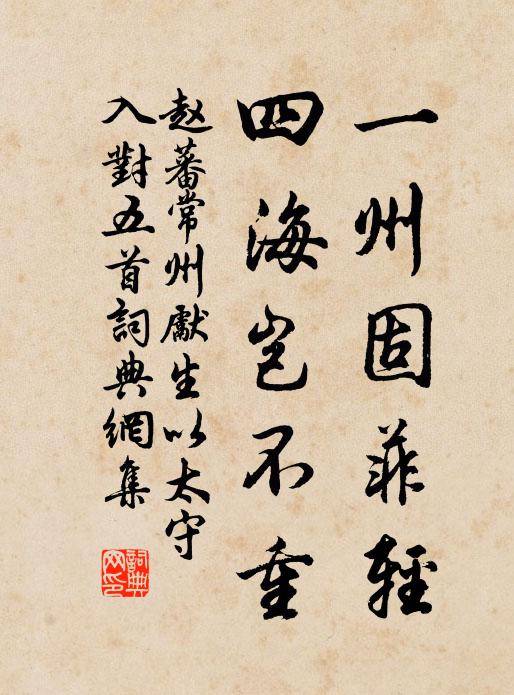 一州固菲輕
四海岂不重
赵蕃常州獻生以太守
入對五首詞典網集
詞典
网印